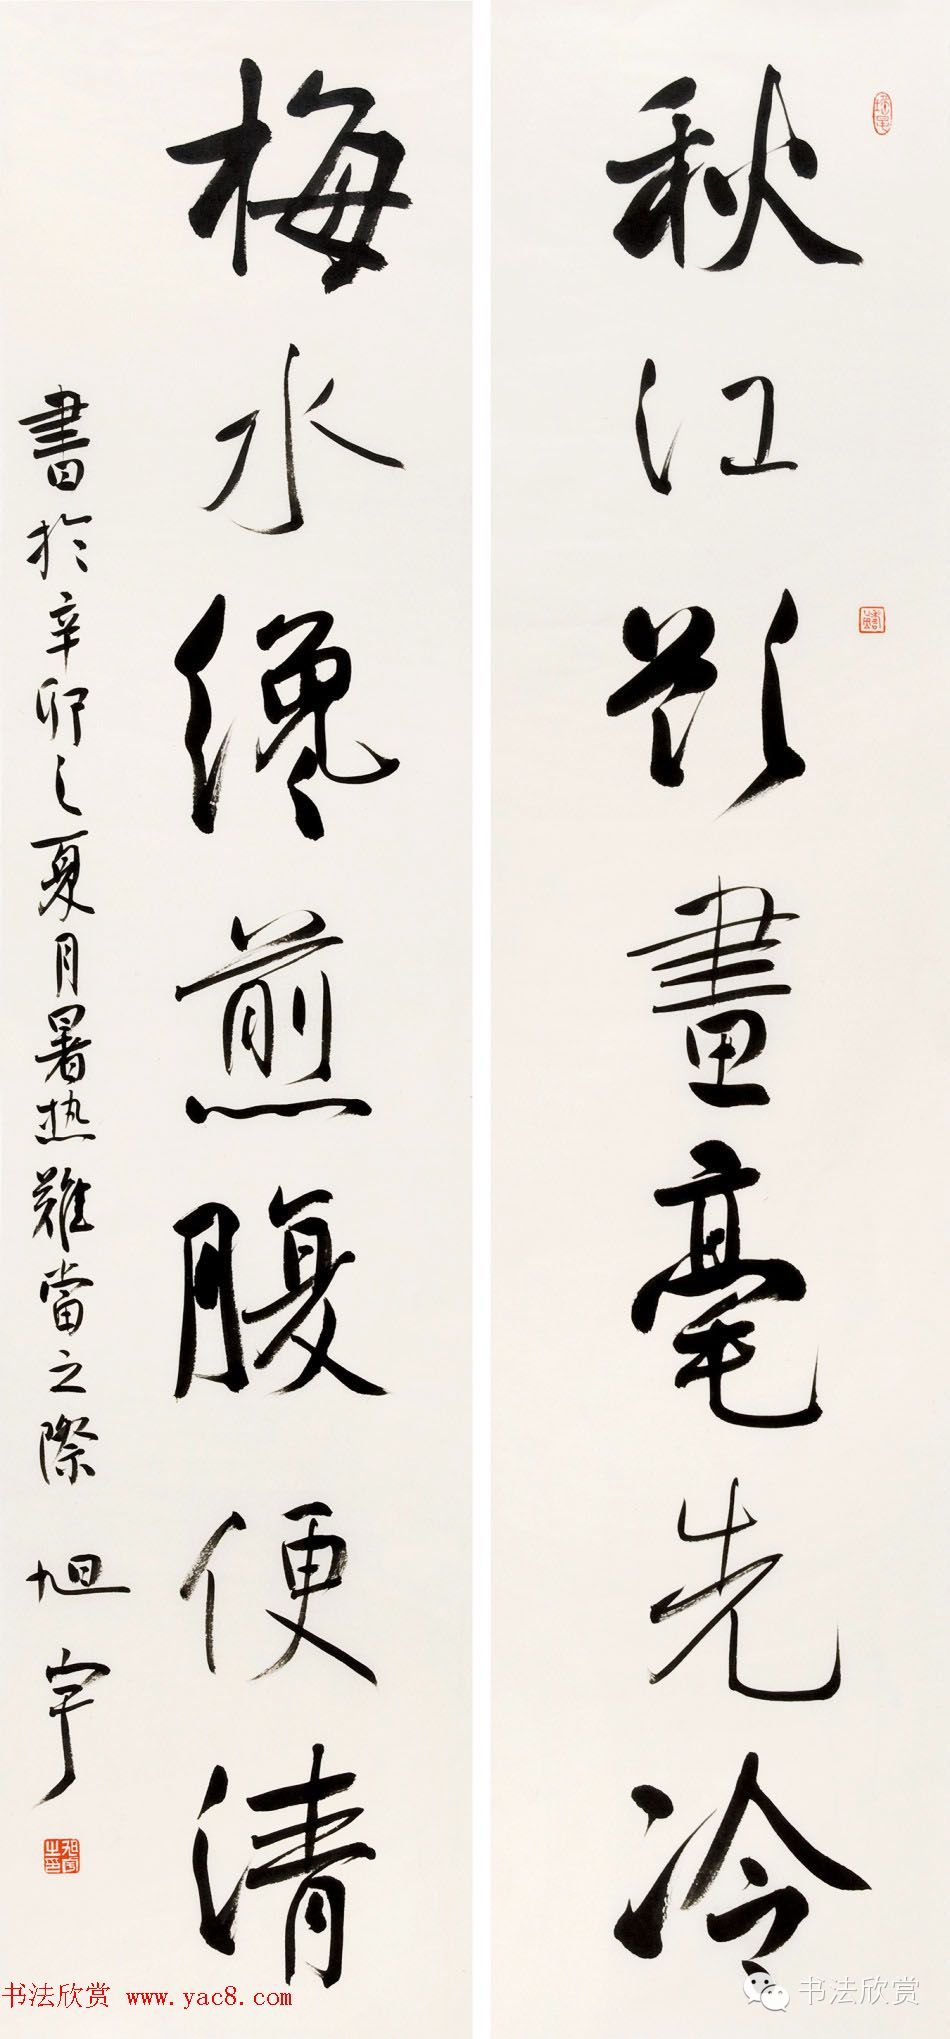 秋江欲畫毫先冷
梅水纔煎腹便清
書於辛卯之夏月暑热難當之際 旭宇
书法欣赏 www.yac8.com
书法欣赏